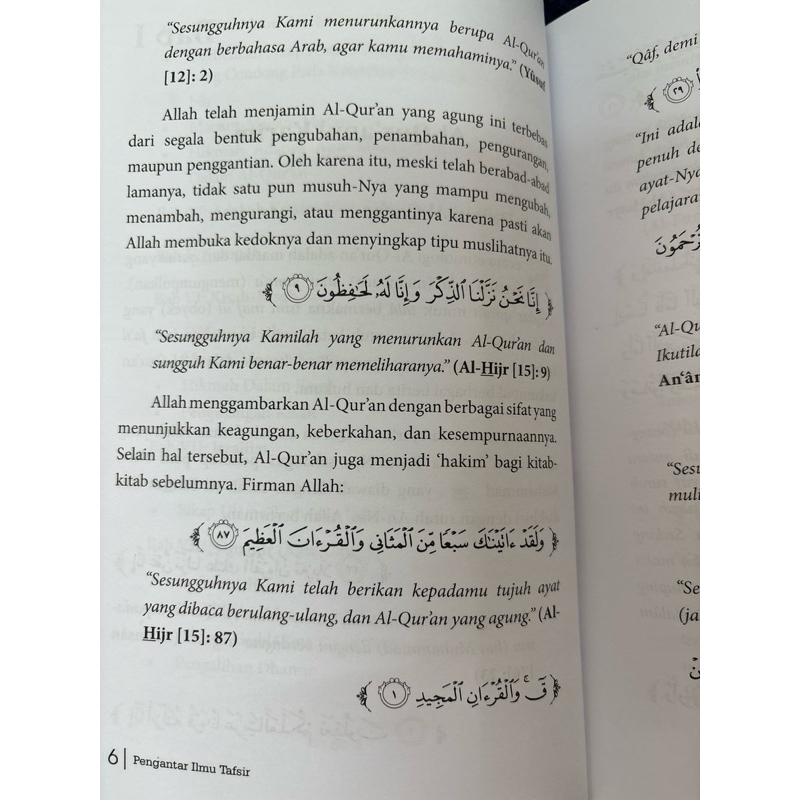 “Sesungguhnya Kami menurunkannya berupa Al-Qur’an
dengan berbahasa Arab, agar kamu memahaminya.” (Yûsuf
[12]: 2)
Allah telah menjamin Al-Qur’an yang agung ini terbebas
dari segala bentuk pengubahan, penambahan, pengurangan,
maupun penggantian. Oleh karena itu, meski telah berabad-abad
lamanya, tidak satu pun musuh-Nya yang mampu mengubah,
menambah, mengurangi, atau menggantinya karena pasti akan
Allah membuka kedoknya dan menyingkap tipu muslihatnya itu.
﴿ إِنَّا نَحْنُ نَزَّلْنَا ٱلذِّكْرَ وَإِنَّا لَهُۥ لَحَـٰفِظُونَ ٩ ﴾
“Sesungguhnya Kamilah yang menurunkan Al-Qur’an dan
sungguh Kami benar-benar memeliharanya.” (Al-Hijr [15]: 9)
Allah menggambarkan Al-Qur’an dengan berbagai sifat yang
menunjukkan keagungan, keberkahan, dan kesempurnaannya.
Selain hal tersebut, Al-Qur’an juga menjadi ‘hakim’ bagi kitab-
kitab sebelumnya. Firman Allah:
﴿ وَلَقَدْ ءَاتَيْنَـٰكَ سَبْعًا مِّنَ ٱلْمَثَانِى وَٱلْقُرْءَانَ ٱلْعَظِيمَ ٨٧ ﴾
“Sesungguhnya Kami telah berikan kepadamu tujuh ayat
yang dibaca berulang-ulang, dan Al-Qur’an yang agung.” (Al-
Hijr [15]: 87)
﴿ قٓ ۚ وَٱلْقُرْءَانِ ٱلْمَجِيدِ ١ ﴾
6 | Pengantar Ilmu Tafsir
“Qâf, demi
٢٩
“Ini adal
penuh de
ayat-Nya
pelajara
“Al-Qu
Ikutila
An‘âm
“Sesu
muli
“Se
(ja